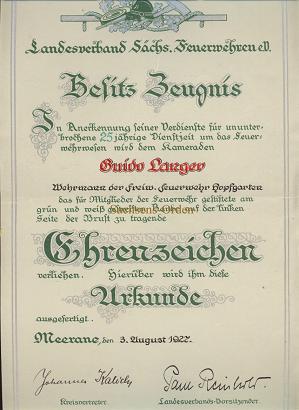 Landesverband Sächs. Feuerwehren e.V.
Besitz Zeugnis
In Anerkennung seiner Verdienste für ununter-
brochene 25 jährige Dienstzeit um das Feuer-
wehrwesen wird dem Kameraden
Guido Langer
Wehrmann der Freiw. Feuerwehr Hopfgarten
das für Mitglieder der Feuerwehr gestiftete am
grün und weiß Bande auf der linken
Seite der Brust zu tragende
Ehrenzeichen
verliehen. Hierüber wird ihm diese
Urkunde
ausgefertigt.
Meerane, den 3. August 1927.
Johannes
Paul Reinhold
Kreisvertreter.
Landesverbands-Vorsitzender.